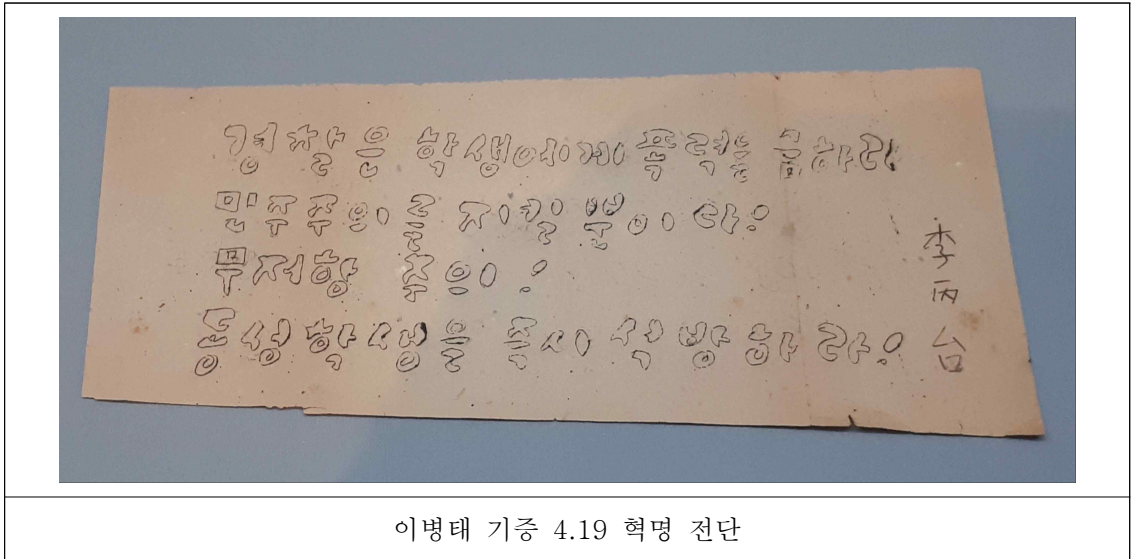 경찰은 학생에게 폭력을 금하라
민주주의를 좀먹 뿐이다!
무저항 주의!
동성학생을 즉시 석방하라!
李丙台
이병태 기증 4.19 혁명 전단